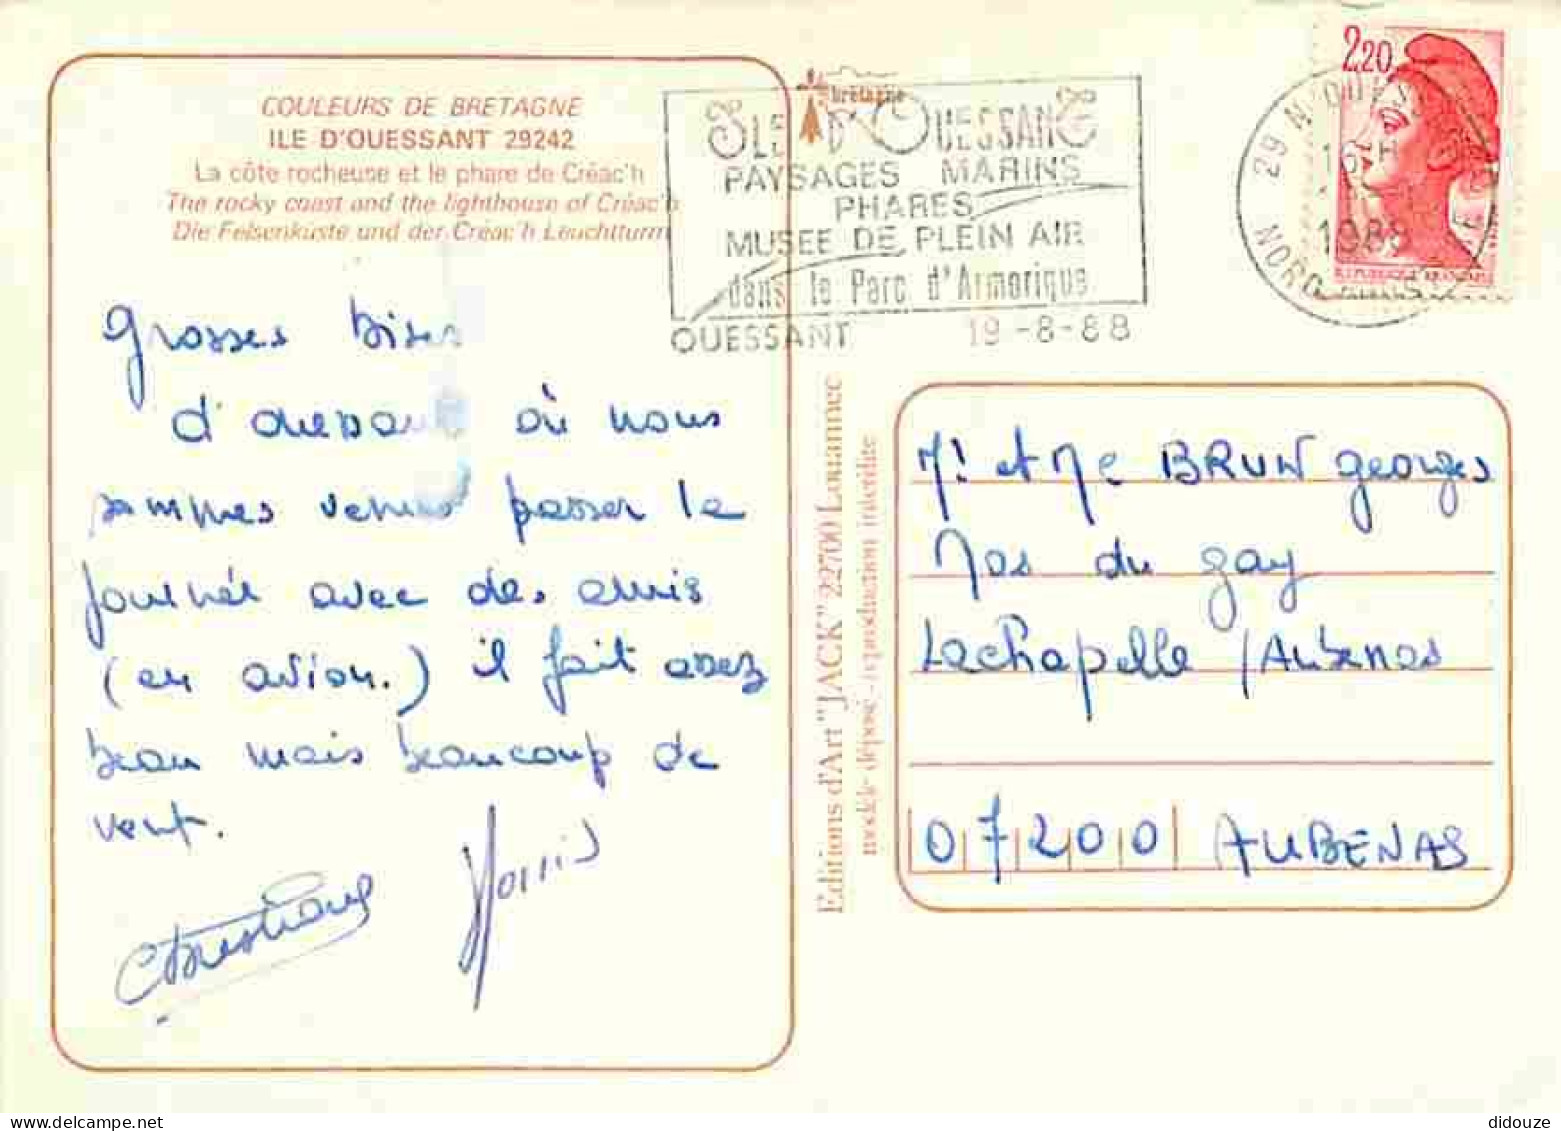 COULEURS DE BRETAGNE
ILE D'OUESSANT 29242
La côte rocheuse et le phare de Créac'h
The rocky coast and the lighthouse of Créac'h
Die Felsenküste und der Créac'h Leuchtturm
Grosses bises
d'ouessant où nous
sommes venus passer la
journée avec des amis
(en avion.) il fait assez
beau mais beaucoup de
vent.
bretagne
ILE D'OUESSANT
PAYSAGES MARINS
PHARES
MUSEE DE PLEIN AIR
dans le Parc d'Armorique
OUESSANT 19-8-88
2,20
29 N
1988
NORD
Editions d'Art "JACK" 22700 Louannec
modèle déposé - reproduction interdite
Mr et Me BRUN georges
Mas du gay
La Chapelle / Aubenas
07200 AUBENAS
didouze